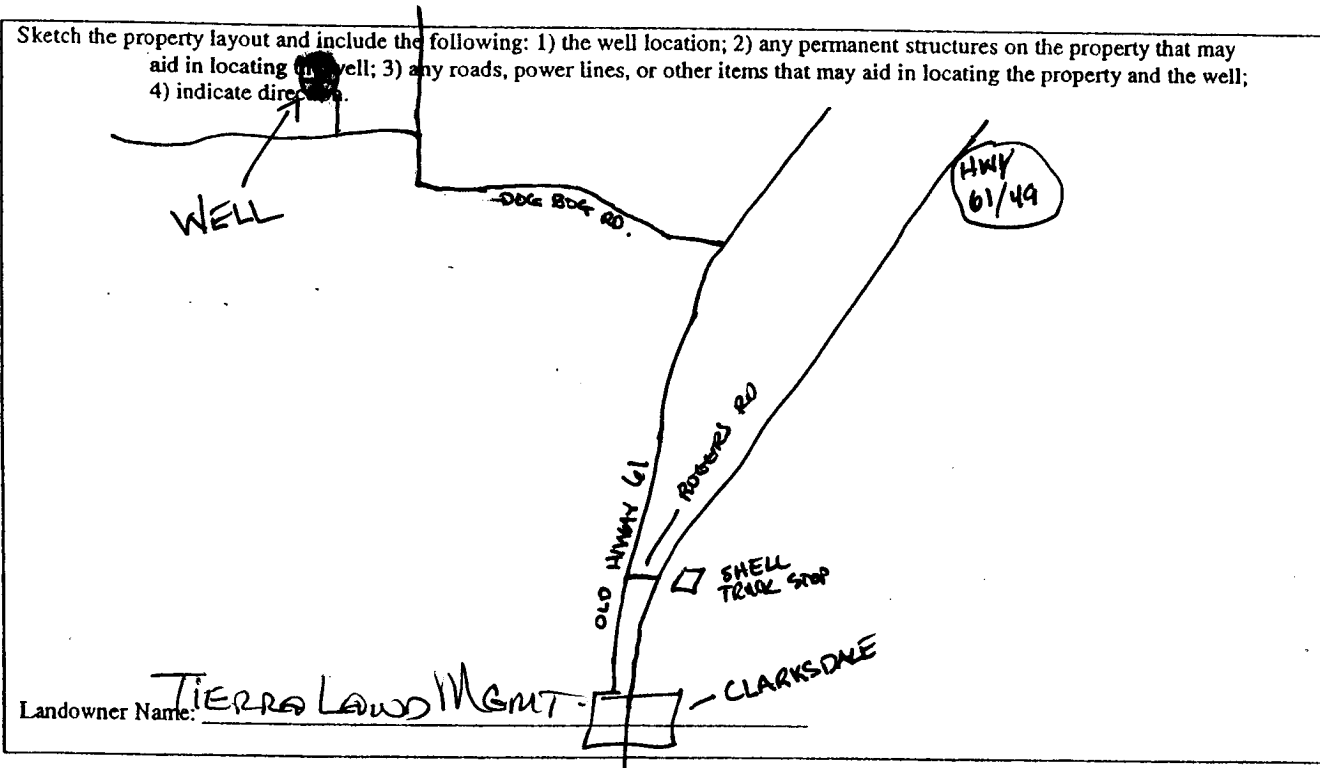 Sketch the property layout and include the following: 1) the well location; 2) any permanent structures on the property that may
aid in locating the well; 3) any roads, power lines, or other items that may aid in locating the property and the well;
4) indicate direction.
WELL
DOG BOG RD.
HWY
61/49
ROGERS RD
OLD HIWAY 61
SHELL
TRUCK STOP
CLARKSDALE
Landowner Name: TIERRA LAND MGMT.